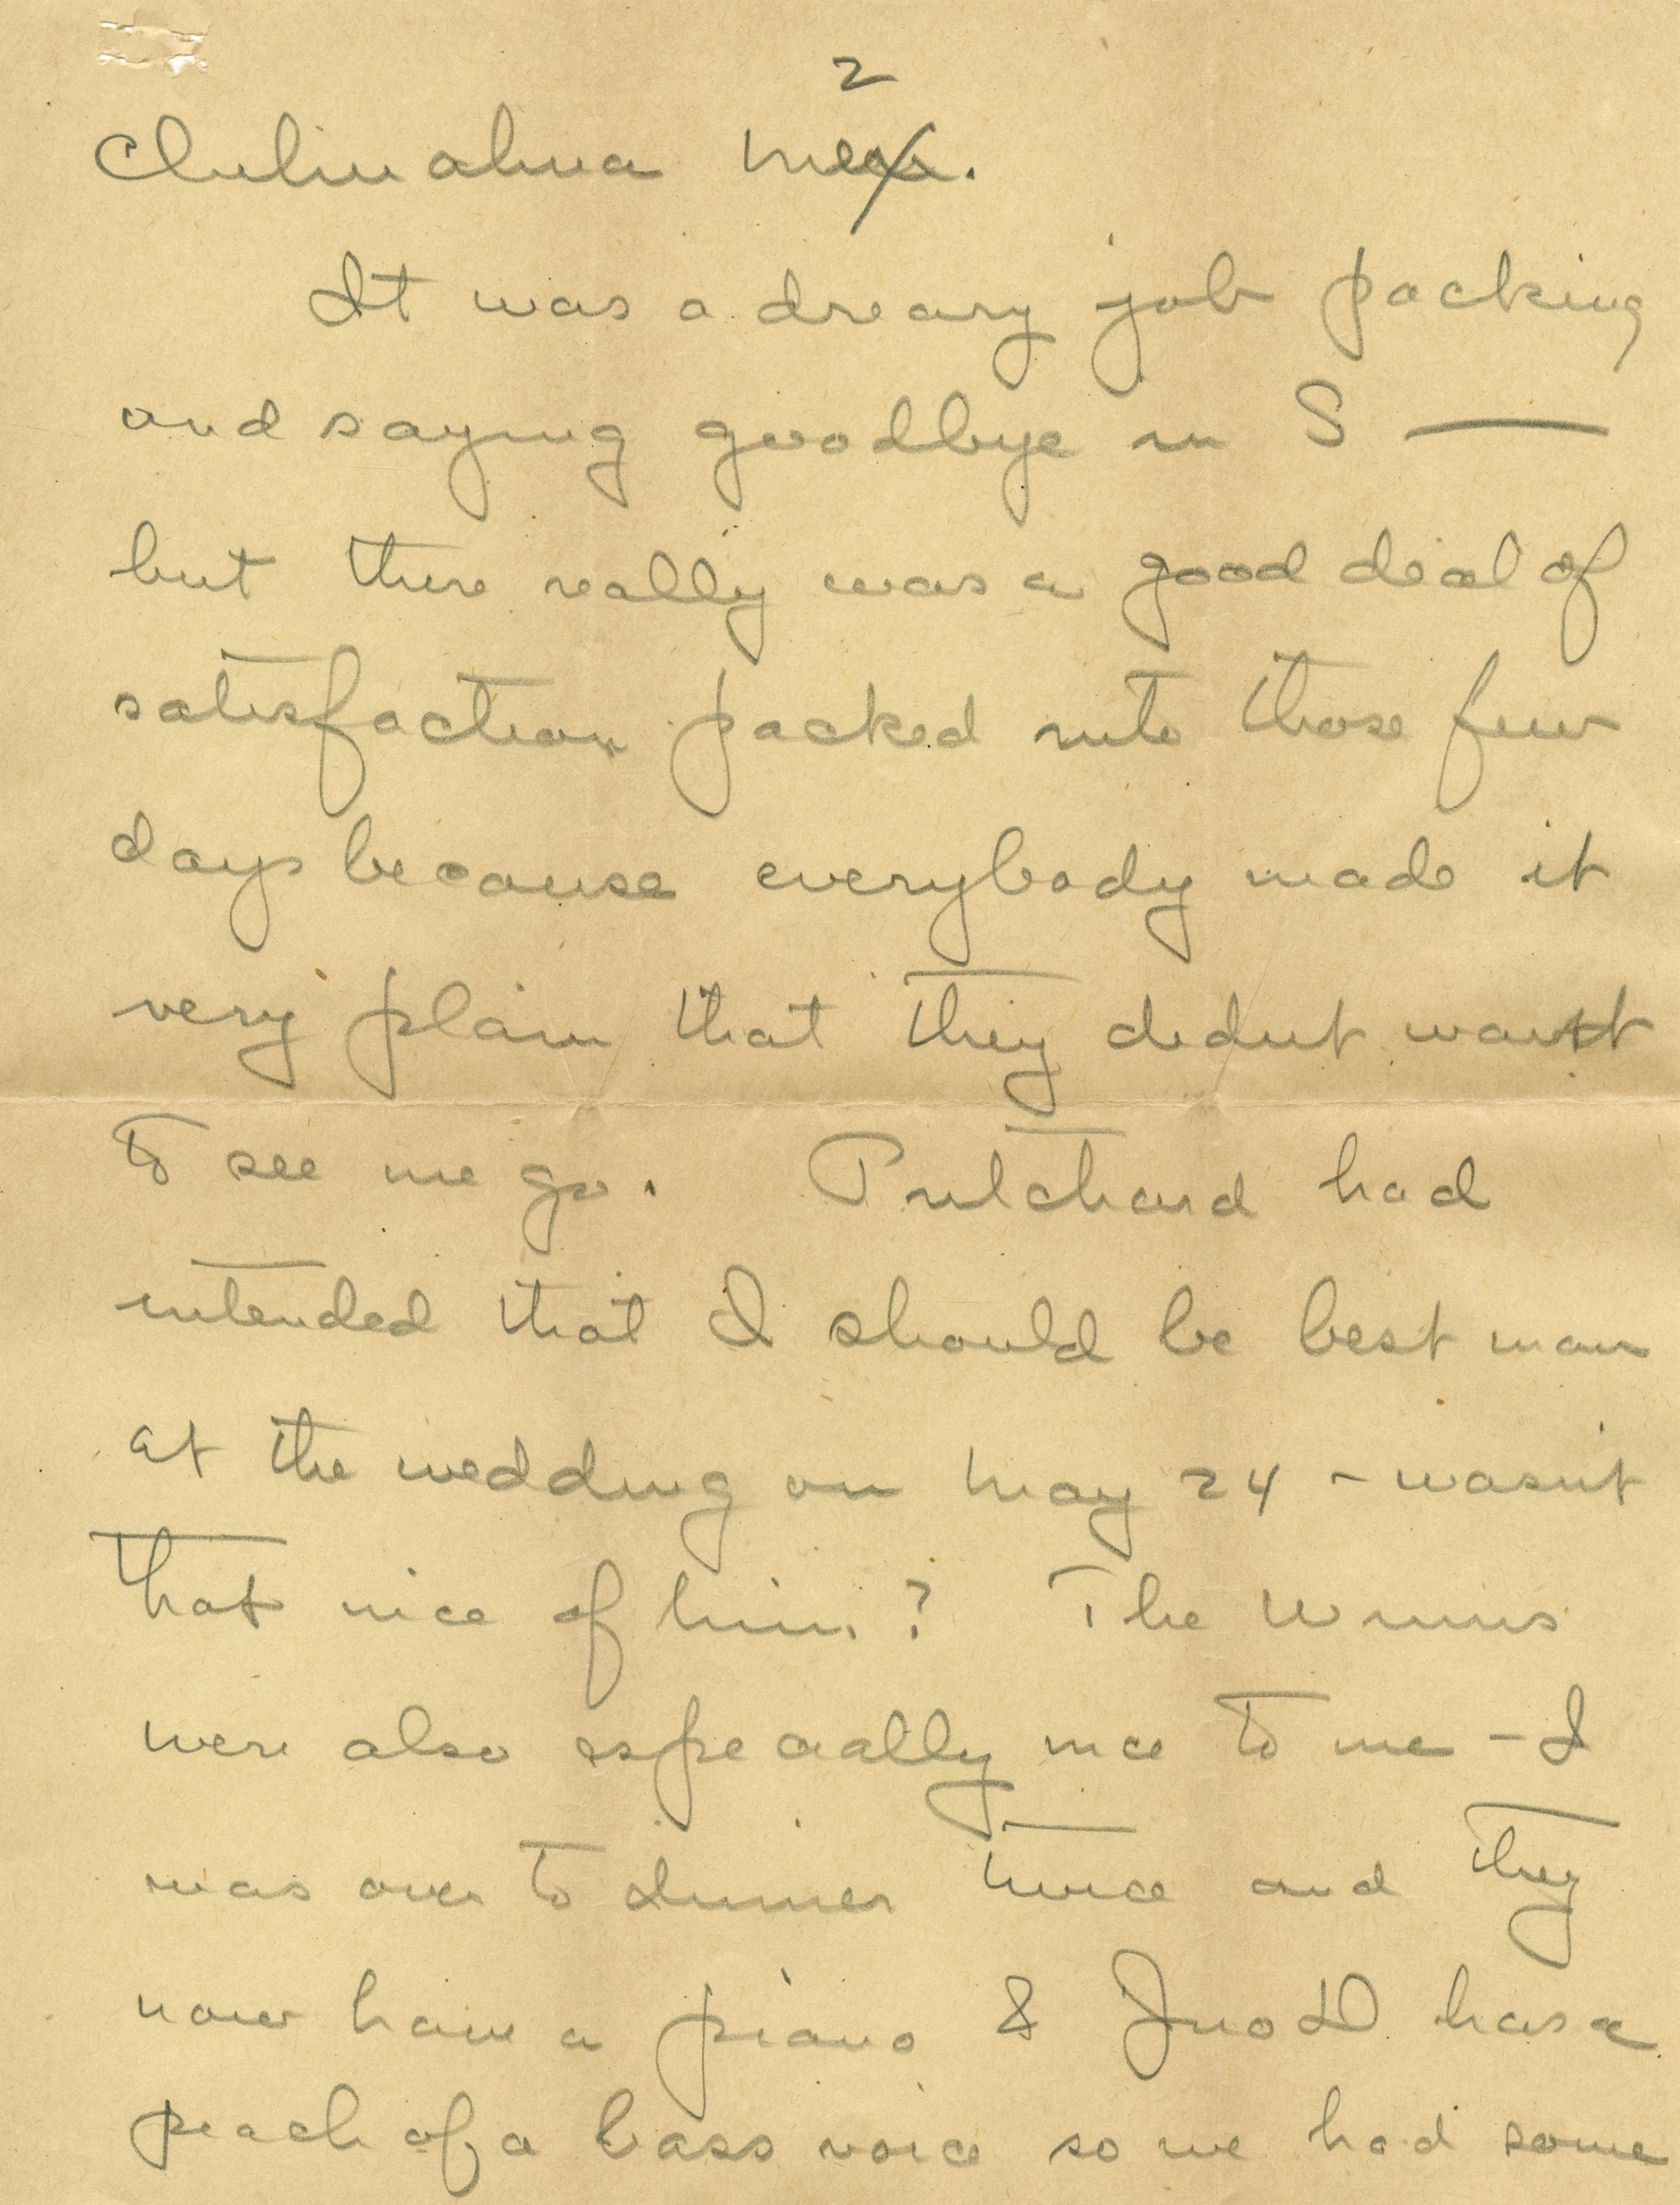 2
Chihuahua Mex.
It was a dreary job packing
and saying goodbye in S —
but there really was a good deal of
satisfaction packed into those few
days because everybody made it
very plain that they didnt want
to see me go. Pritchard had
intended that I should be best man
at the wedding on May 24 - wasnt
that nice of him? The Winns
were also especially nice to me - I
was over to dinner twice and they
now have a piano & Jno D has a
peach of a bass voice so we had some